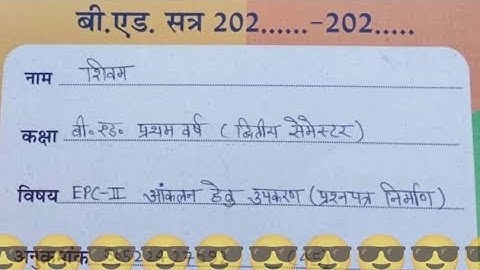 बी.एड. सत्र 202......-202.....
नाम शिवम
कक्षा बी॰एड॰ प्रथम वर्ष ( द्वितीय सेमेस्टर )
विषय EPC-II आंकलन हेतु उपकरण (प्रश्नपत्र निर्माण)
अनुक्रमांक